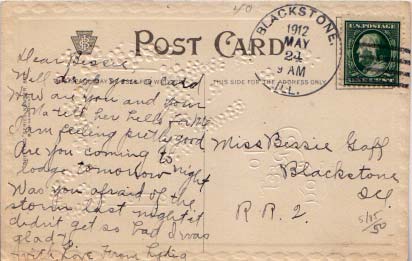 40
POST CARD
BLACKSTONE.
1912
MAY
24
9 AM
ILL.
U.S. POSTAGE
THIS SIDE FOR THE ADDRESS ONLY
Dear Bessie
Will you a card
How are you and your
I am feeling good
Are you coming to
lodge tomorrow night
Was you afraid of the
storm last night it
didn't get so bad I was
glad
with Love From Lydia
Miss Bessie Goff
Blackstone
Ill
R.R. 2.